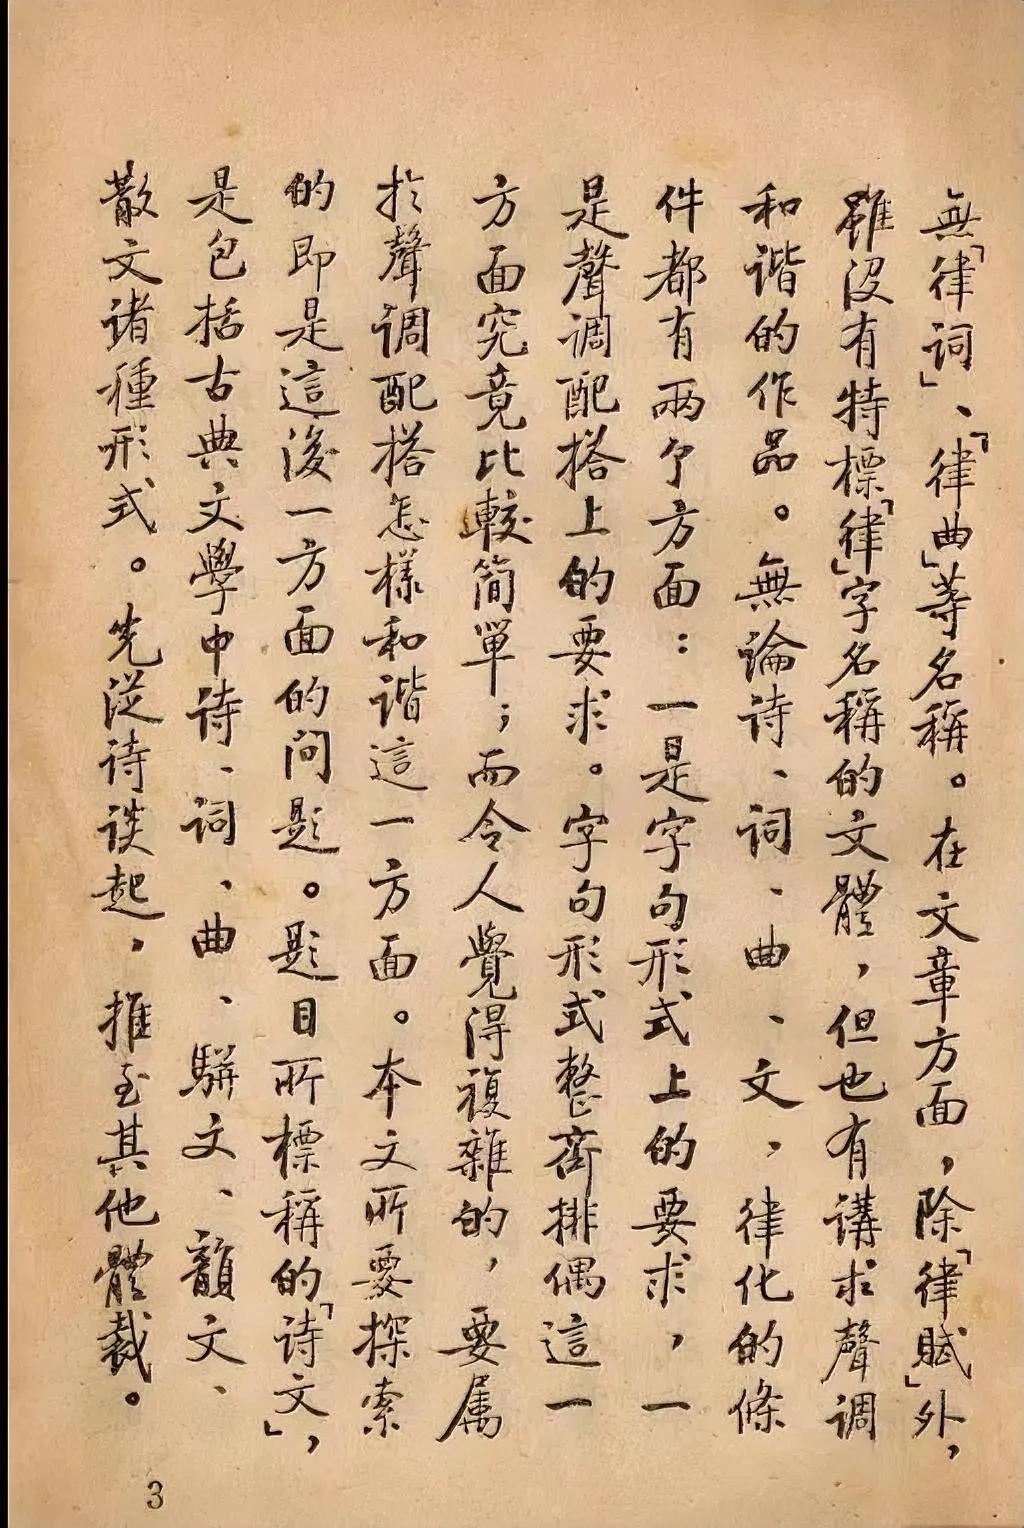 無「律词」、「律曲」等名稱。在文章方面，除「律賦」外，
雖没有特標「律」字名稱的文體，但也有講求聲调
和谐的作品。無論诗、词、曲、文，律化的條
件都有兩个方面：一是字句形式上的要求，一
是聲调配搭上的要求。字句形式整齊排偶這一
方面究竟比較简單；而令人覺得複雜的，要属
扵聲调配搭怎樣和谐這一方面。本文所要探索
的即是這後一方面的问题。题目所標稱的「诗文」，
是包括古典文學中诗、词、曲、駢文、韻文、
散文诸種形式。先從诗談起，推至其他體裁。
3